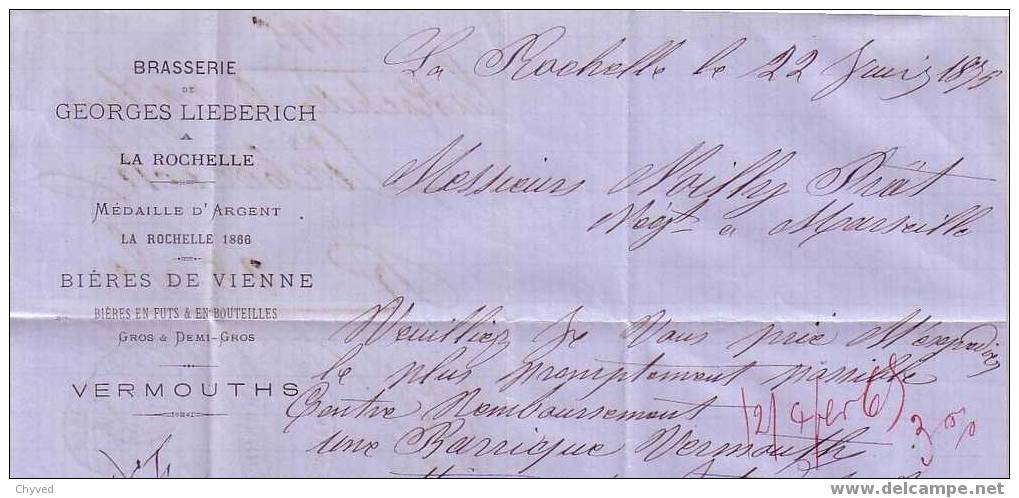 BRASSERIE
DE
GEORGES LIEBERICH
A
LA ROCHELLE
MÉDAILLE D'ARGENT
LA ROCHELLE 1866
BIÈRES DE VIENNE
BIÈRES EN FUTS & EN BOUTEILLES
GROS & DEMI-GROS
VERMOUTHS
La Rochelle le 22 Juin 187
Messieurs Noilly Prat
Négt à Marseille
Veuilliez Je Vous prie M'expedier
le plus promptement possible
Contre Remboursement
une Barrique Vermouth
Chyved
www.delcampe.net